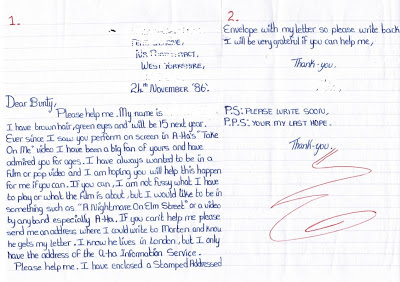 1.
West Yorkshire,
24th November '86.
Dear Bunty,
Please help me. My name is
I have brown hair, green eyes and will be 15 next year.
Ever since I saw you perform on screen in A-Ha's "Take
On Me" video I have been a big fan of yours and have
admired you for ages. I have always wanted to be in a
film or pop video and I am hoping you will help this happen
for me if you can. If you can, I am not fussy what I have
to play or what the film is about, but I would like to be in
something such as "A Nightmare On Elm Street" or a video
by any band especially A-Ha. If you can't help me please
send me an address where I could write to Morten and know
he gets my letter. I know he lives in London, but I only
have the address of the A-ha Information Service.
Please help me. I have enclosed a Stamped Addressed
2.
Envelope with my letter so please write back
I will be very grateful if you can help me,
Thank-you.
P.S: PLEASE WRITE SOON,
P.P.S: YOUR MY LAST HOPE.
Thank-you